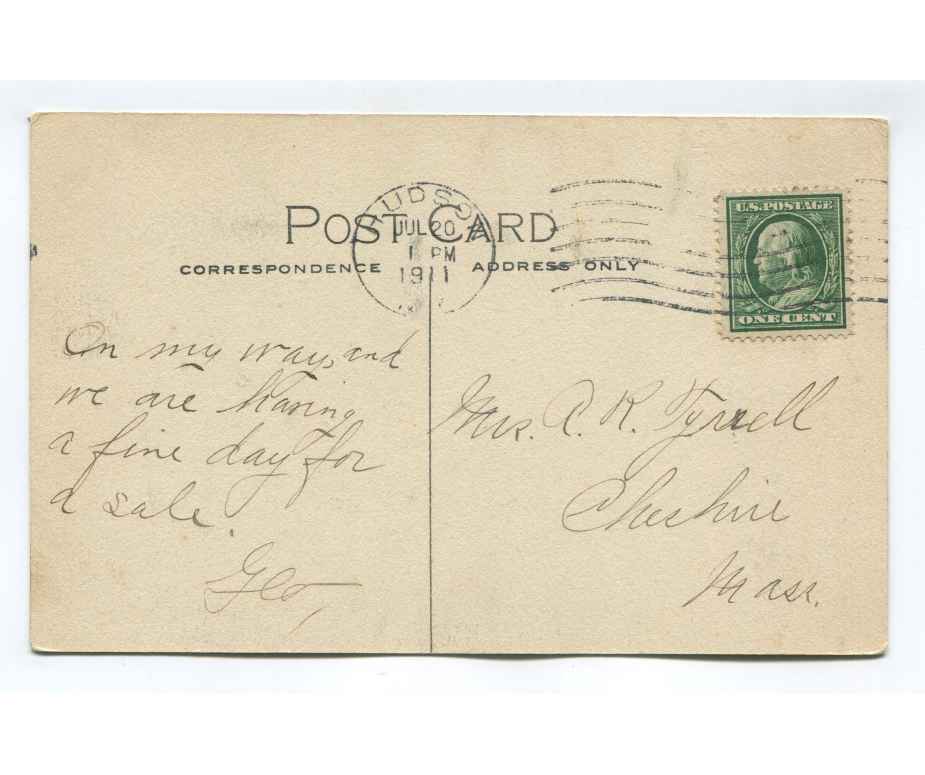 POST CARD
CORRESPONDENCE
ADDRESS ONLY
HUDSON
JUL 20
1 PM
1911
U.S. POSTAGE
ONE CENT
On my way, and
we are having
a fine day for
a sale.
Geo,
Mrs. A. R. Tyrrell
Cheshire
Mass.